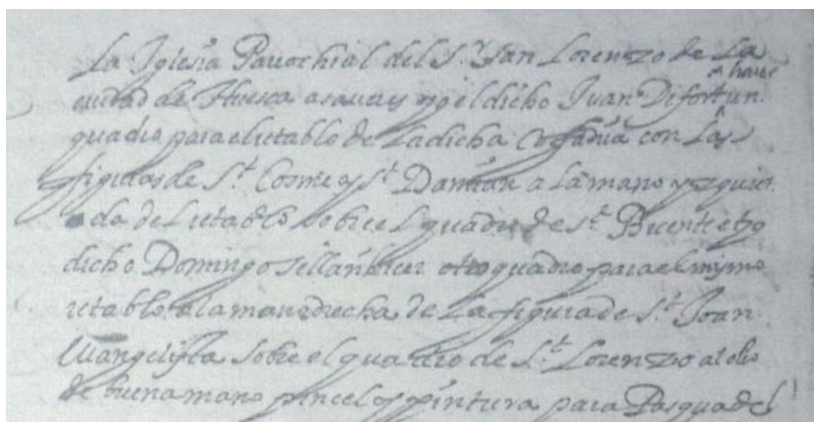 La Iglesia Parrochial del S.r San Lorenzo de La
ciudad de Huesca a saver yo el dicho Juan Difortun
hacer
quadro para el retablo de La dicha Cofadria con Las
figuras de S.t Cosme y S.t Damian a La mano yzquier
da del retablo sobre el quadro de S.t Bicente et yo
dicho Domingo hacer otro quadro para el mismo
retablo a la mano drecha de La figura de S.t Joan
Evangelista sobre el quadro de S.t Lorenzo al olio
de buena mano pincel y pintura para Pasqua del